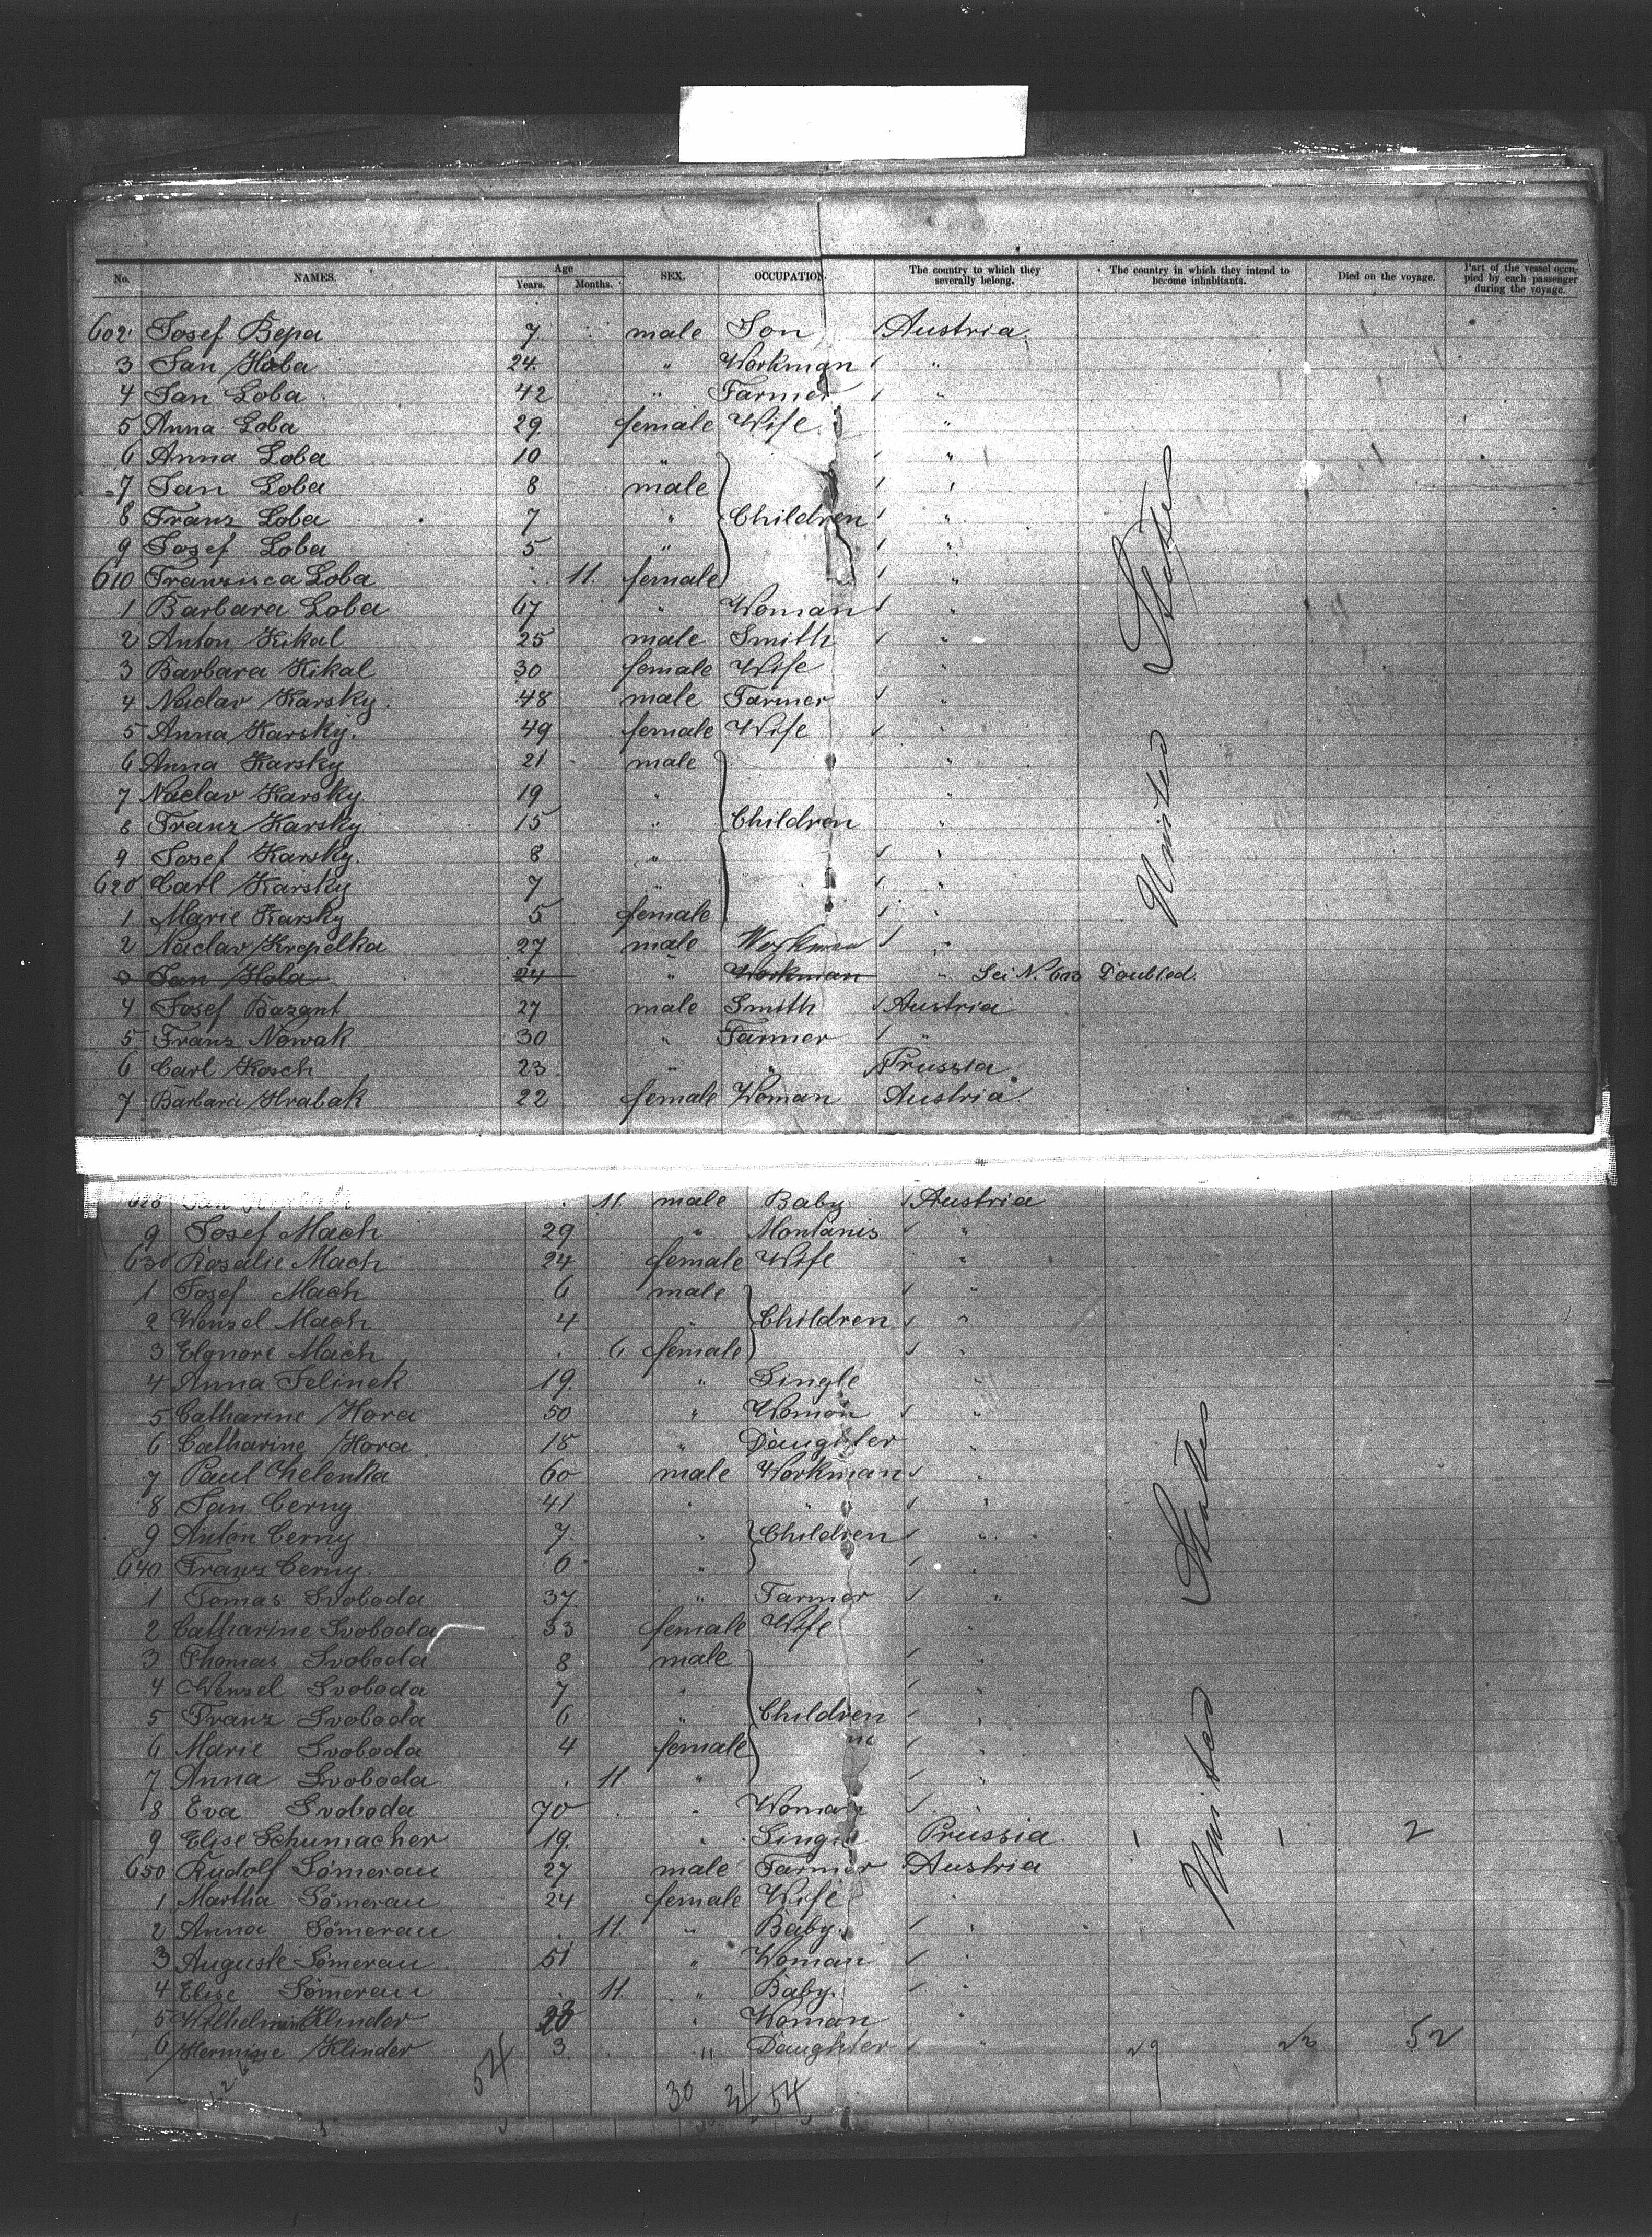 No. NAMES. Age Years. Months. SEX. OCCUPATION. The country to which they severally belong. The country in which they intend to become inhabitants. Died on the voyage. Part of the vessel occupied by each passenger during the voyage.
602 Josef Bepa 7 male Son Austria
3 Jan Hola 24 " Workman "
4 Jan Loba 42 " Farmer "
5 Anna Loba 29 female Wife "
6 Anna Loba 10 " "
7 Jan Loba 8 male "
8 Franz Loba 7 " Children "
9 Josef Loba 5 " "
610 Franzisca Loba 11 female "
1 Barbara Loba 67 " Woman "
2 Anton Kikal 25 male Smith "
3 Barbara Kikal 30 female Wife "
4 Naclav Karsky 48 male Farmer "
5 Anna Karsky 49 female Wife "
6 Anna Karsky 21 male "
7 Naclav Karsky 19 " "
8 Franz Karsky 15 " Children "
9 Josef Karsky 8 " "
620 Carl Karsky 7 " "
1 Marie Karsky 5 female "
2 Naclav Krepelka 27 male Workman "
3 Jan Hola 24 " Workman " Sei N. 603 Doubled.
4 Josef Bazant 27 male Smith Austria
5 Franz Nowak 30 " Farmer "
6 Carl Kosch 23 " " Prussia
7 Barbara Hrabak 22 female Woman Austria
United States
628 11 male Baby Austria
9 Josef Mach 29 " Montanis "
630 Rosalie Mach 24 female Wife "
1 Josef Mach 6 male "
2 Wenzel Mach 4 " Children "
3 Elonore Mach 6 female "
4 Anna Jelinek 19 " Single "
5 Catharine Hora 50 " Woman "
6 Catharine Hora 18 " Daughter "
7 Paul Chelenka 60 male Workman "
8 Jan Cerny 41 " " "
9 Anton Cerny 7 " Children "
640 Franz Cerny 6 " "
1 Tomas Svoboda 37 " Farmer "
2 Catharine Svoboda 33 female Wife "
3 Thomas Svoboda 8 male "
4 Wenzel Svoboda 7 " "
5 Franz Svoboda 6 " Children "
6 Marie Svoboda 4 female "
7 Anna Svoboda 11 " "
8 Eva Svoboda 70 " Woman "
9 Elise Schumacher 19 " Single Prussia 1 1 2
650 Rudolf Sömerau 27 male Farmer Austria
1 Martha Sömerau 24 female Wife "
2 Anna Sömerau 11 " Baby "
3 Auguste Sömerau 51 " Woman "
4 Elise Sömerau 11 " Baby "
5 Wilhelmine Klinder " Woman "
6 Hermine Klinder 3 " Daughter " 29 23 52
United States
54 30 24 54